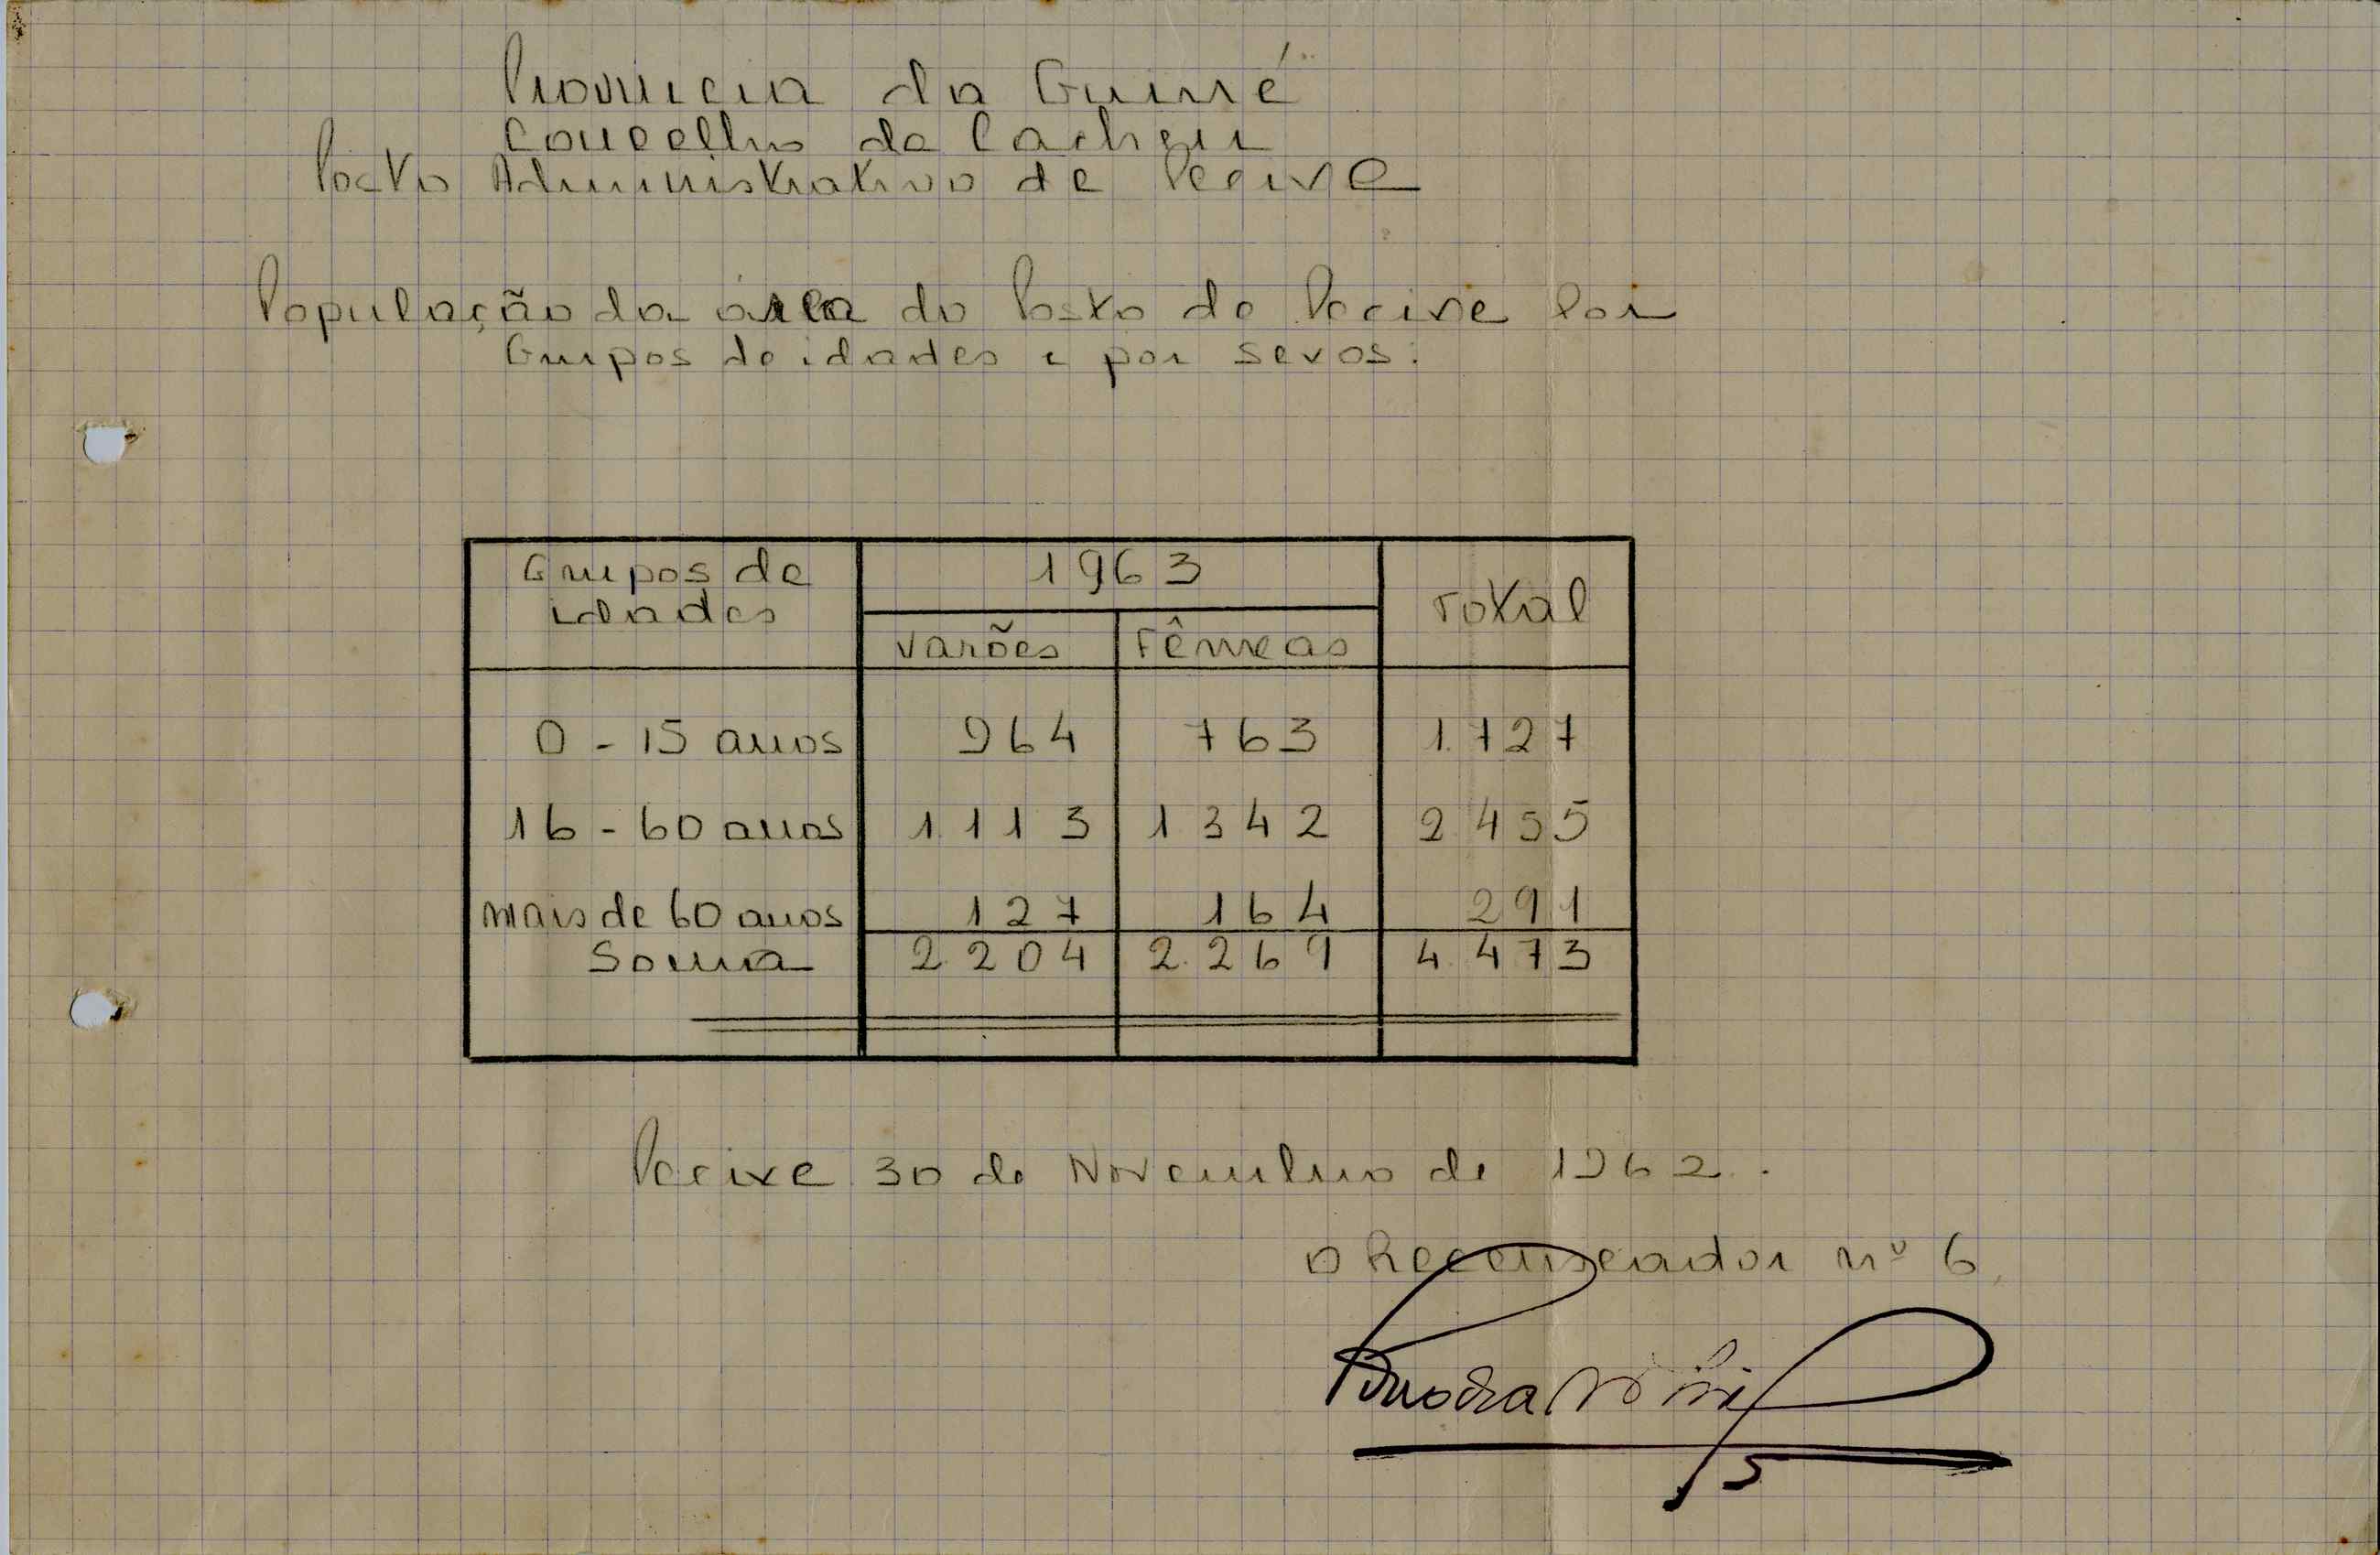 Provincia da Guiné
Concelho de Cacheu
Posto Administrativo de Pecixe
População da área do Posto de Pecixe por
Grupos de idades e por sexos.
Grupos de idades 1963 Total
Varões Fêmeas
0 - 15 anos 964 763 1.727
16 - 60 anos 1.113 1342 2.455
mais de 60 anos 127 164 291
Soma 2.204 2.269 4.473
Pecixe 30 de Novembro de 1962.
O Recenseador nº 6,